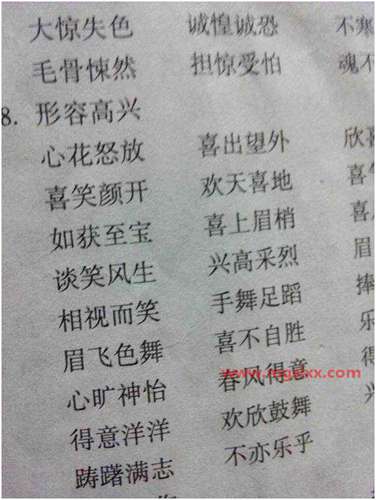 大惊失色 诚惶诚恐 不寒
毛骨悚然 担惊受怕 魂不
8. 形容高兴
心花怒放 喜出望外 欣喜
喜笑颜开 欢天喜地 喜
如获至宝 喜上眉梢 喜
谈笑风生 兴高采烈 眉
相视而笑 手舞足蹈 捧
眉飞色舞 喜不自胜 乐
心旷神怡 春风得意 得
得意洋洋 欢欣鼓舞 兴
踌躇满志 不亦乐乎